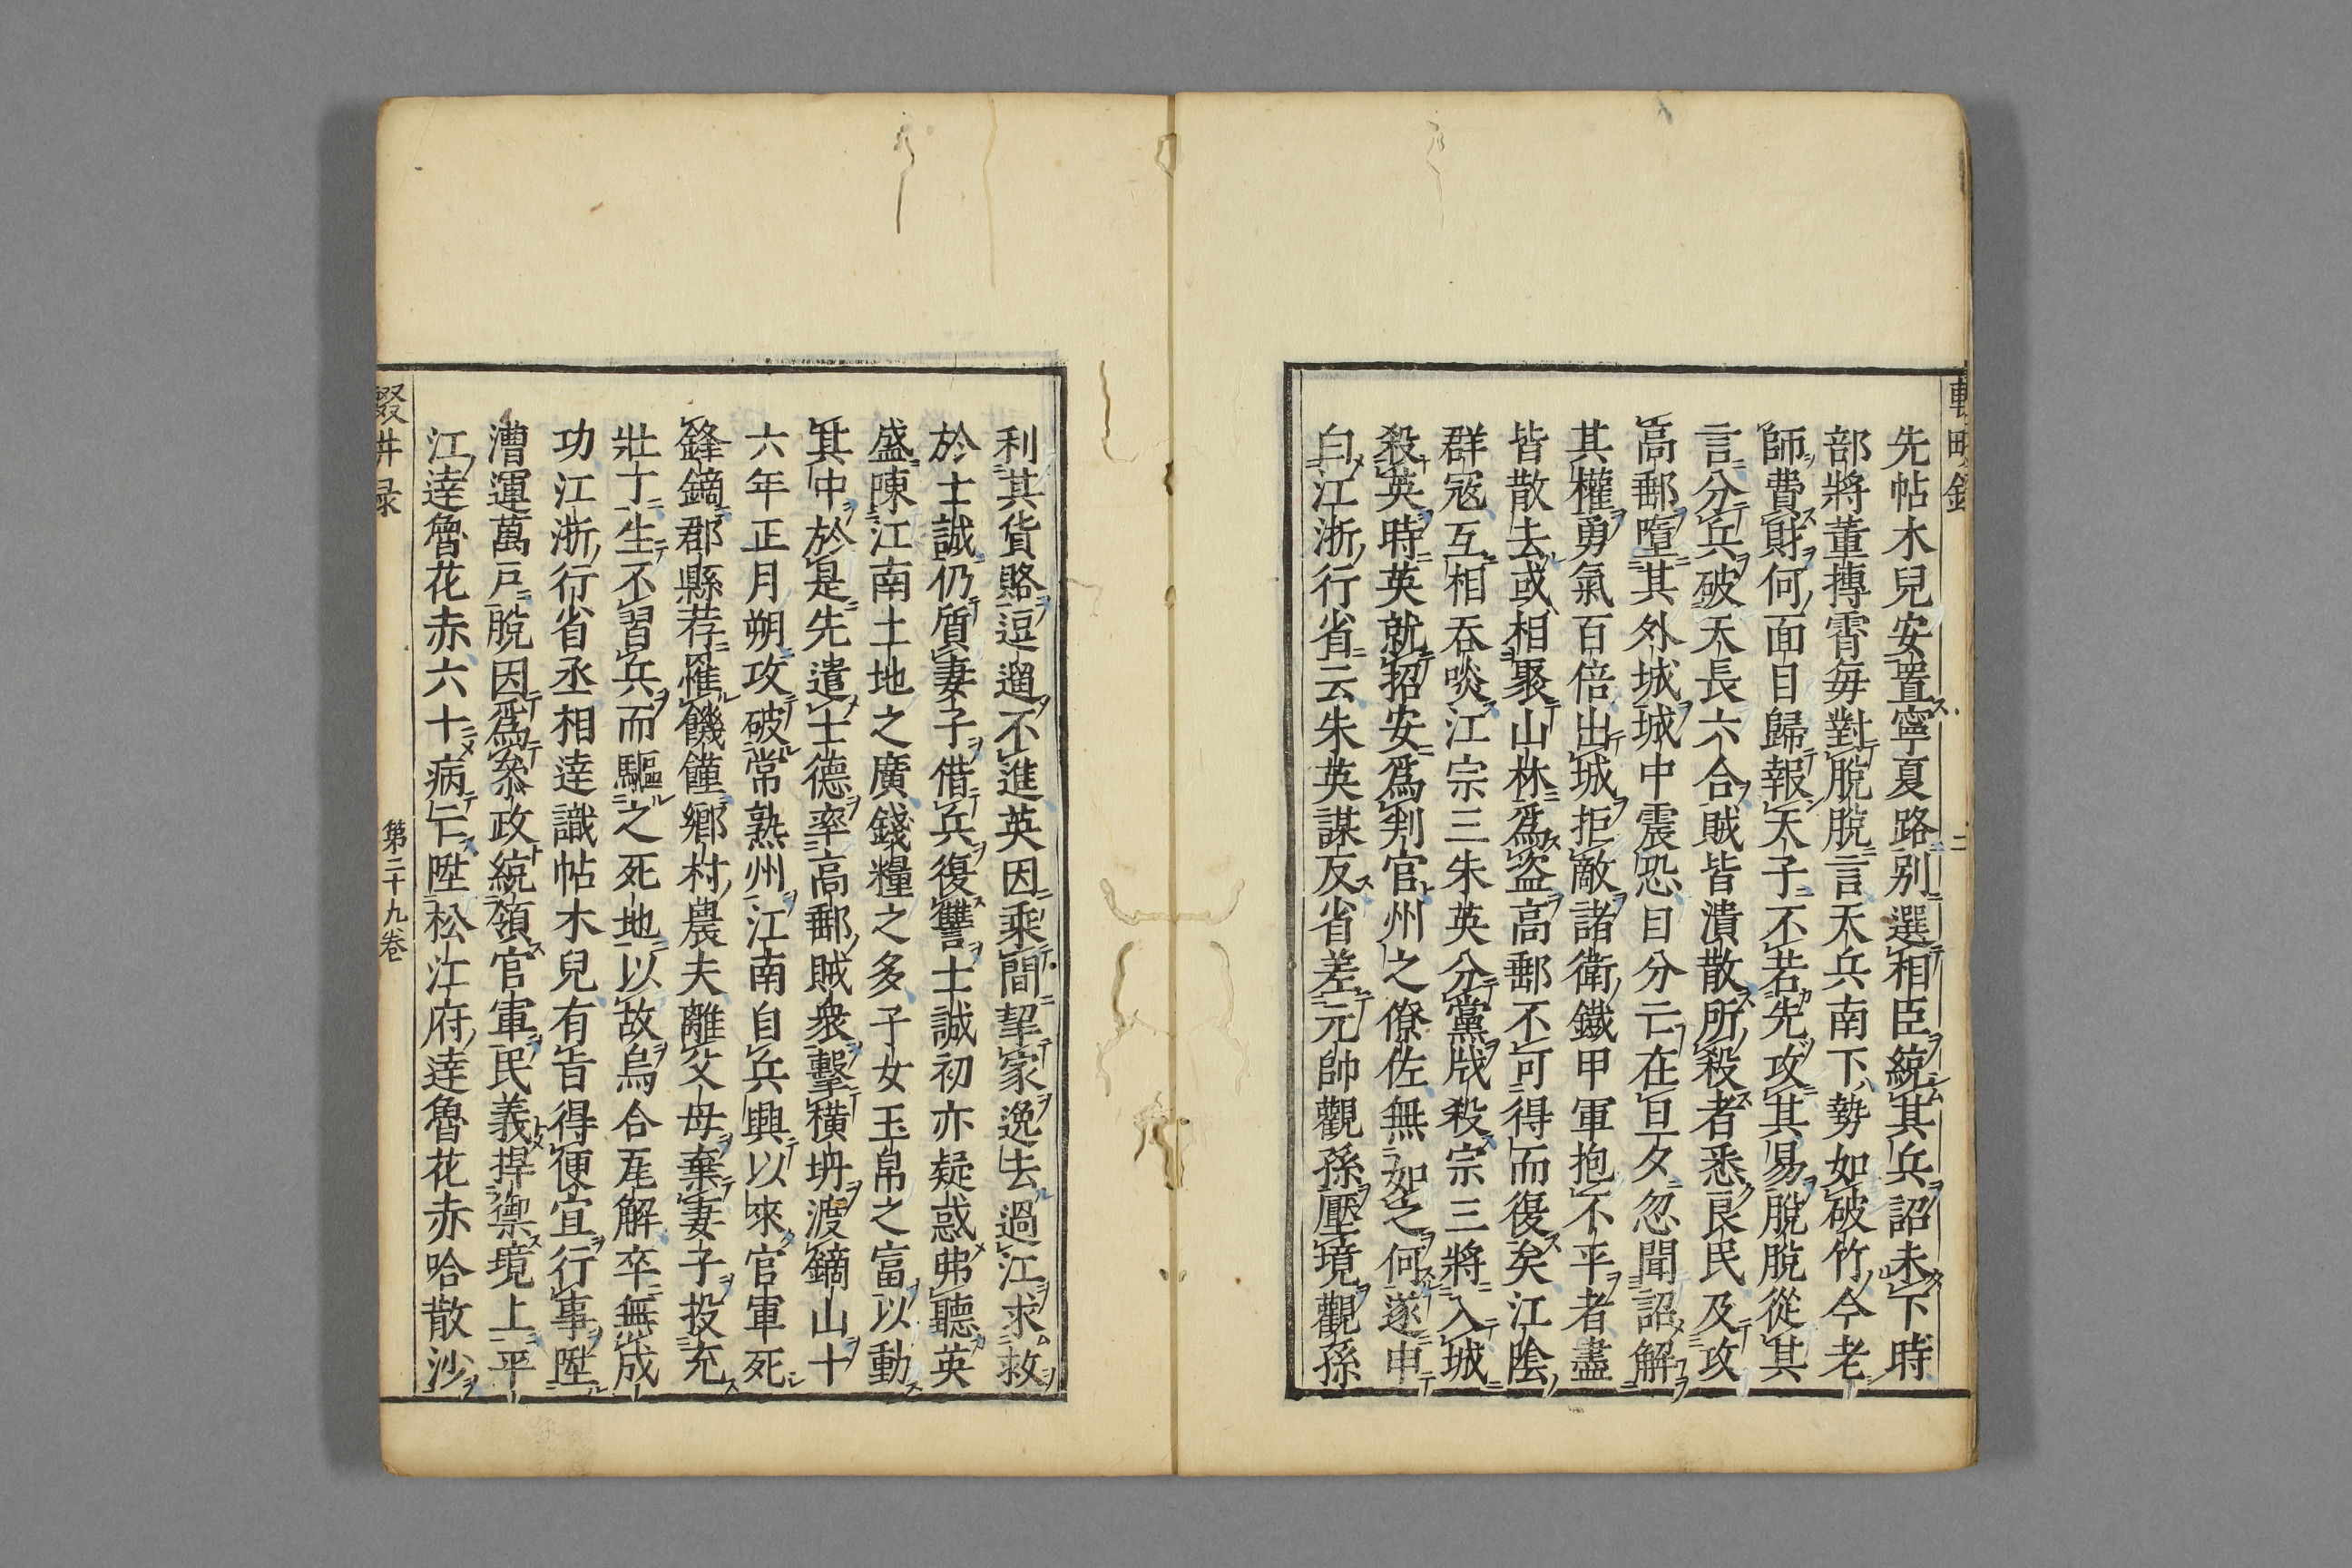 先帖木兒安置寧夏路別選相臣統其兵詔未下時
部將董摶霄毎對脫脫言天兵南下勢如破竹今老
師費財何面目歸報天子不若先攻其易脫脫從其
言分兵破天長六合賊皆潰散所殺者悉良民及攻
高郵墮其外城城中震恐自分亡在旦夕忽聞詔解
其權勇氣百倍出城拒敵諸衛鐵甲軍抱不平者盡
皆散去或相聚山林爲盜高郵不可得而復矣江陰
群寇互相吞啖江宗三朱英分黨戕殺宗三將入城
殺英時英就招安爲判官州之僚佐無如之何遂申
白江浙行省云朱英謀反省差元帥觀孫壓境觀孫
利其貨賂逗遛不進英因乘間挈家逸去過江求救
於士誠仍質妻子借兵復讐士誠初亦疑惑弗聽英
盛陳江南土地之廣錢糧之多子女玉帛之富以動
其中於是先遣士德率高郵賊衆擊橫坍渡鏑山十
六年正月朔攻破常熟州江南自兵興以來官軍死
鋒鏑郡縣荐罹饑饉鄉村農夫離父母棄妻子投充
壯丁生不習兵而驅之死地以故烏合瓦解卒無成
功江浙行省丞相達識帖木兒有旨得便宜行事陞
漕運萬戶脫因爲參政統領官軍民義捍禦境上平
江達魯花赤六十病亡陞松江府達魯花赤哈散沙
第二十九卷